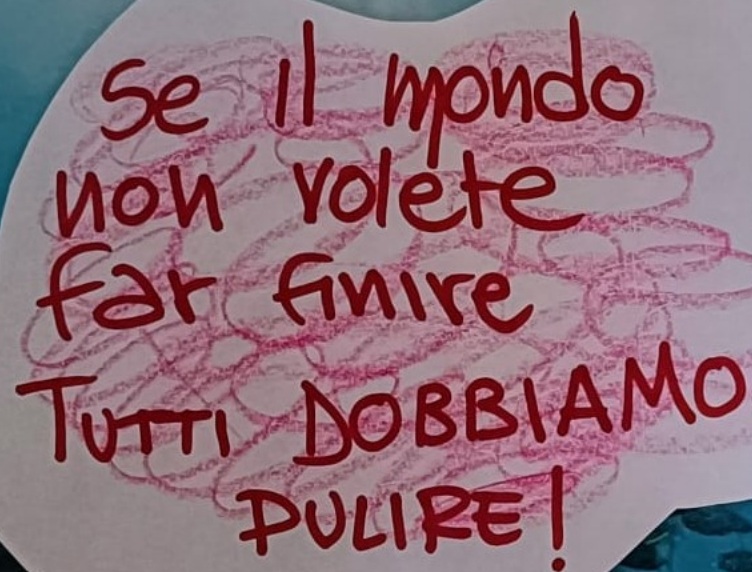 Se il mondo
non volete
far finire
TUTTI DOBBIAMO
PULIRE!